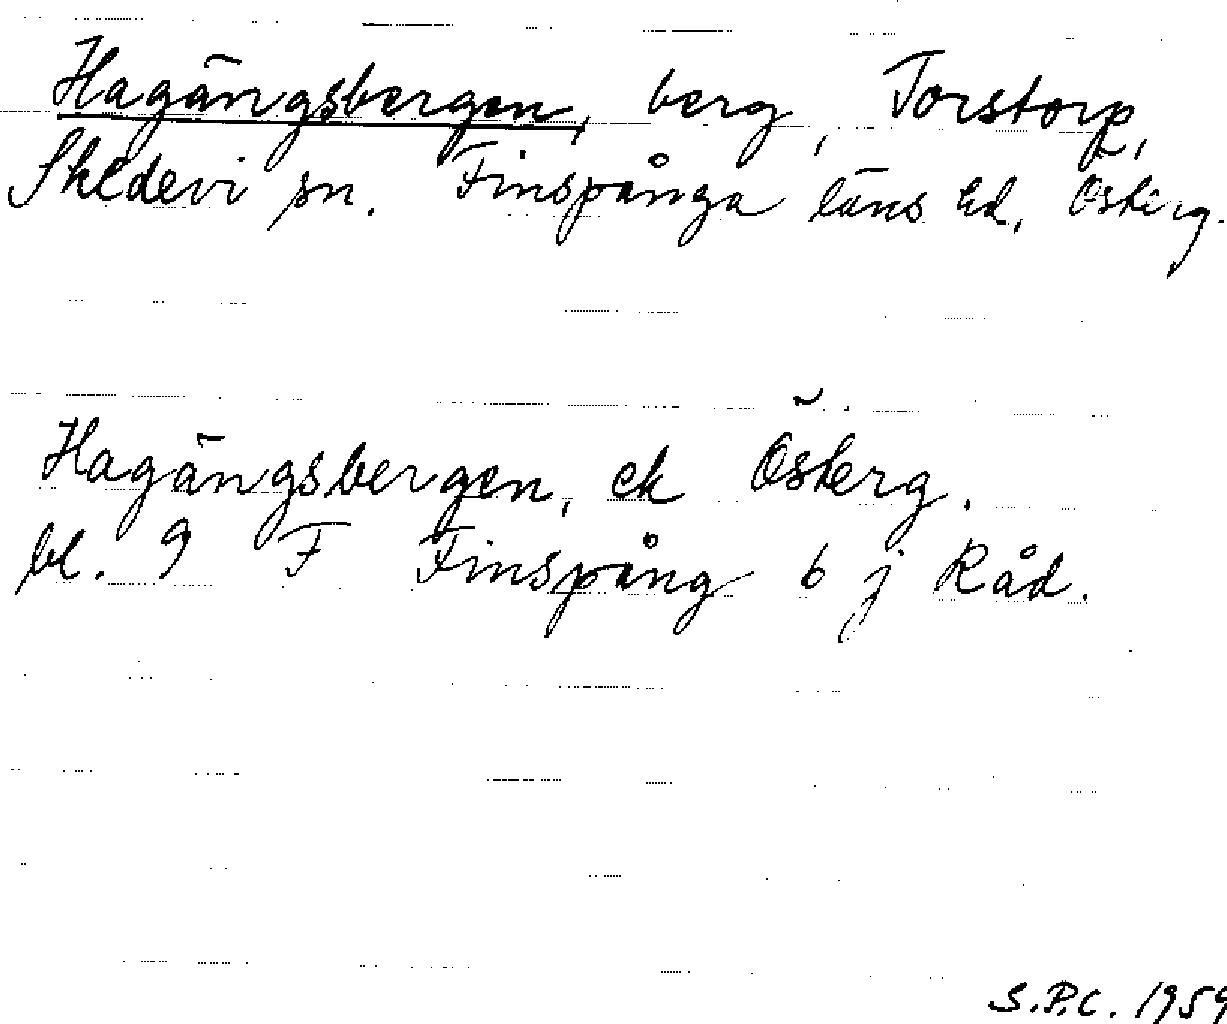 Hagängsbergen, berg, Torstorp,
Skedevi sn. Finspånga läns hd, Österg.
Hagängsbergen, ek Österg.
bl. 9 F Finspång 6 j Råd.
S.P.C. 1959